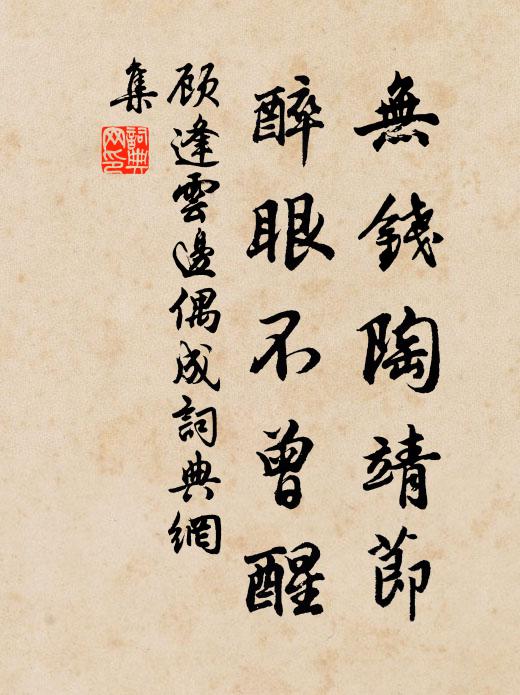 無錢陶靖節
醉眼不曾醒
顧逢雲邊偶成詞典網
集
詞典
网印